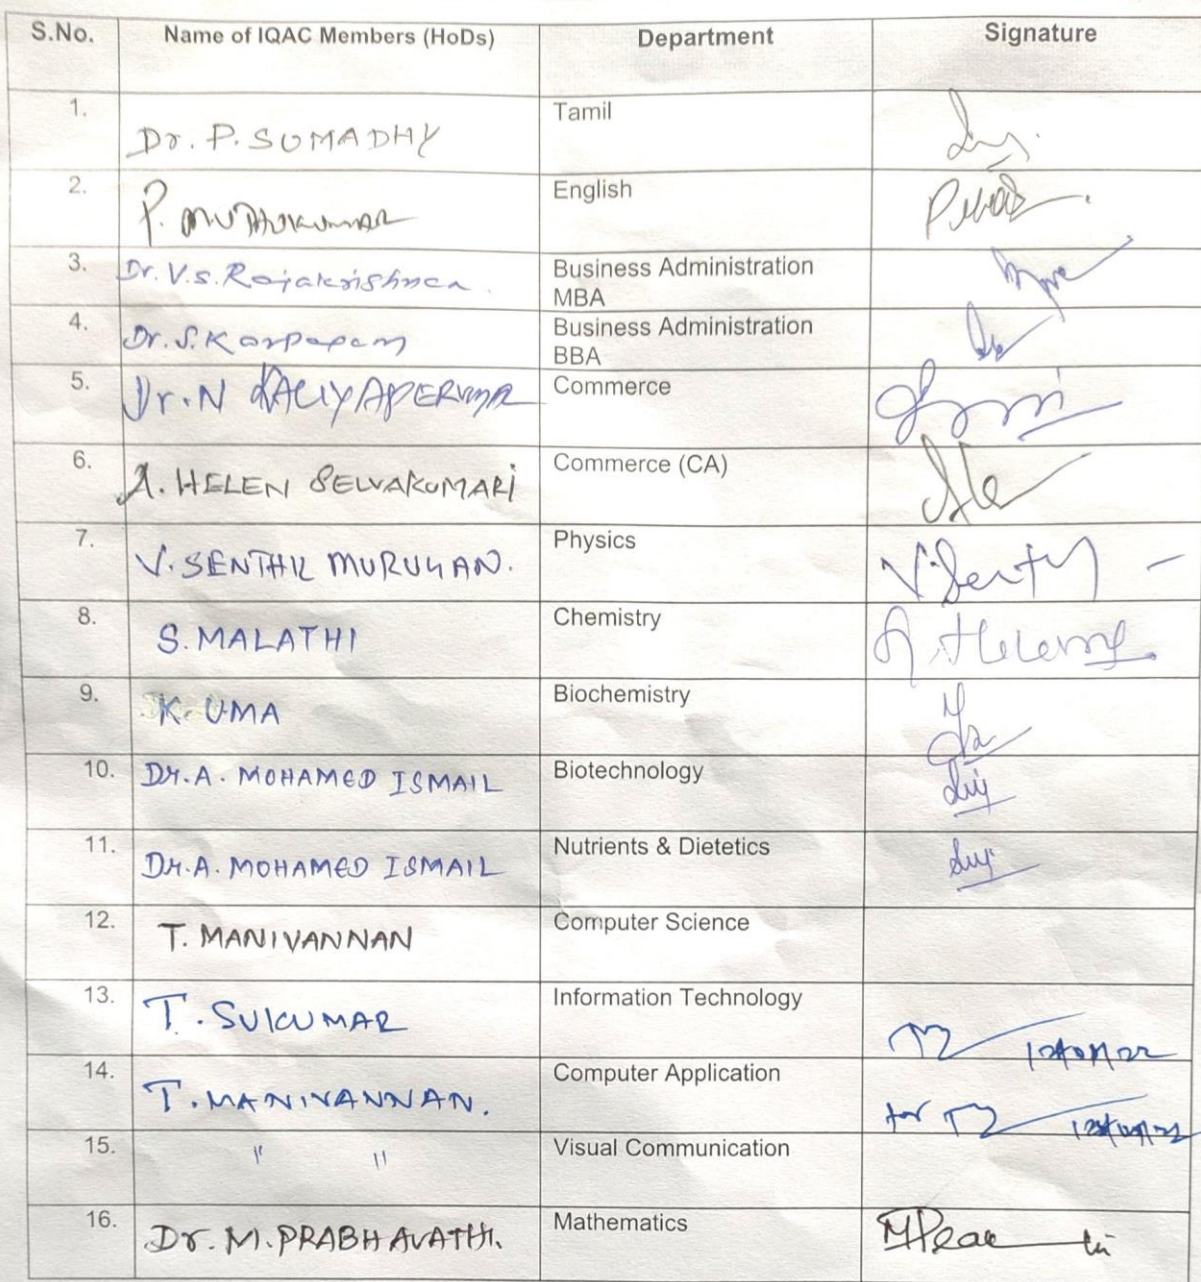 S.No. Name of IQAC Members (HoDs) Department Signature
1. Dr. P. SUMADHY Tamil
2. P. MUTHUKUMAR English
3. Dr. V.S. Rajakrishnan. Business Administration
MBA
4. Dr. S. Karpagam Business Administration
BBA
5. Dr. N KALIYAPERUMAL Commerce
6. A. HELEN SELVAKUMARI Commerce (CA)
7. V. SENTHIL MURUGAN. Physics
8. S. MALATHI Chemistry
9. K. UMA Biochemistry
10. Dr. A. MOHAMED ISMAIL Biotechnology
11. Dr. A. MOHAMED ISMAIL Nutrients & Dietetics
12. T. MANIVANNAN Computer Science
13. T. SUKUMAR Information Technology
14. T. MANIVANNAN. Computer Application for
15. " " Visual Communication
16. Dr. M. PRABHAVATHI. Mathematics